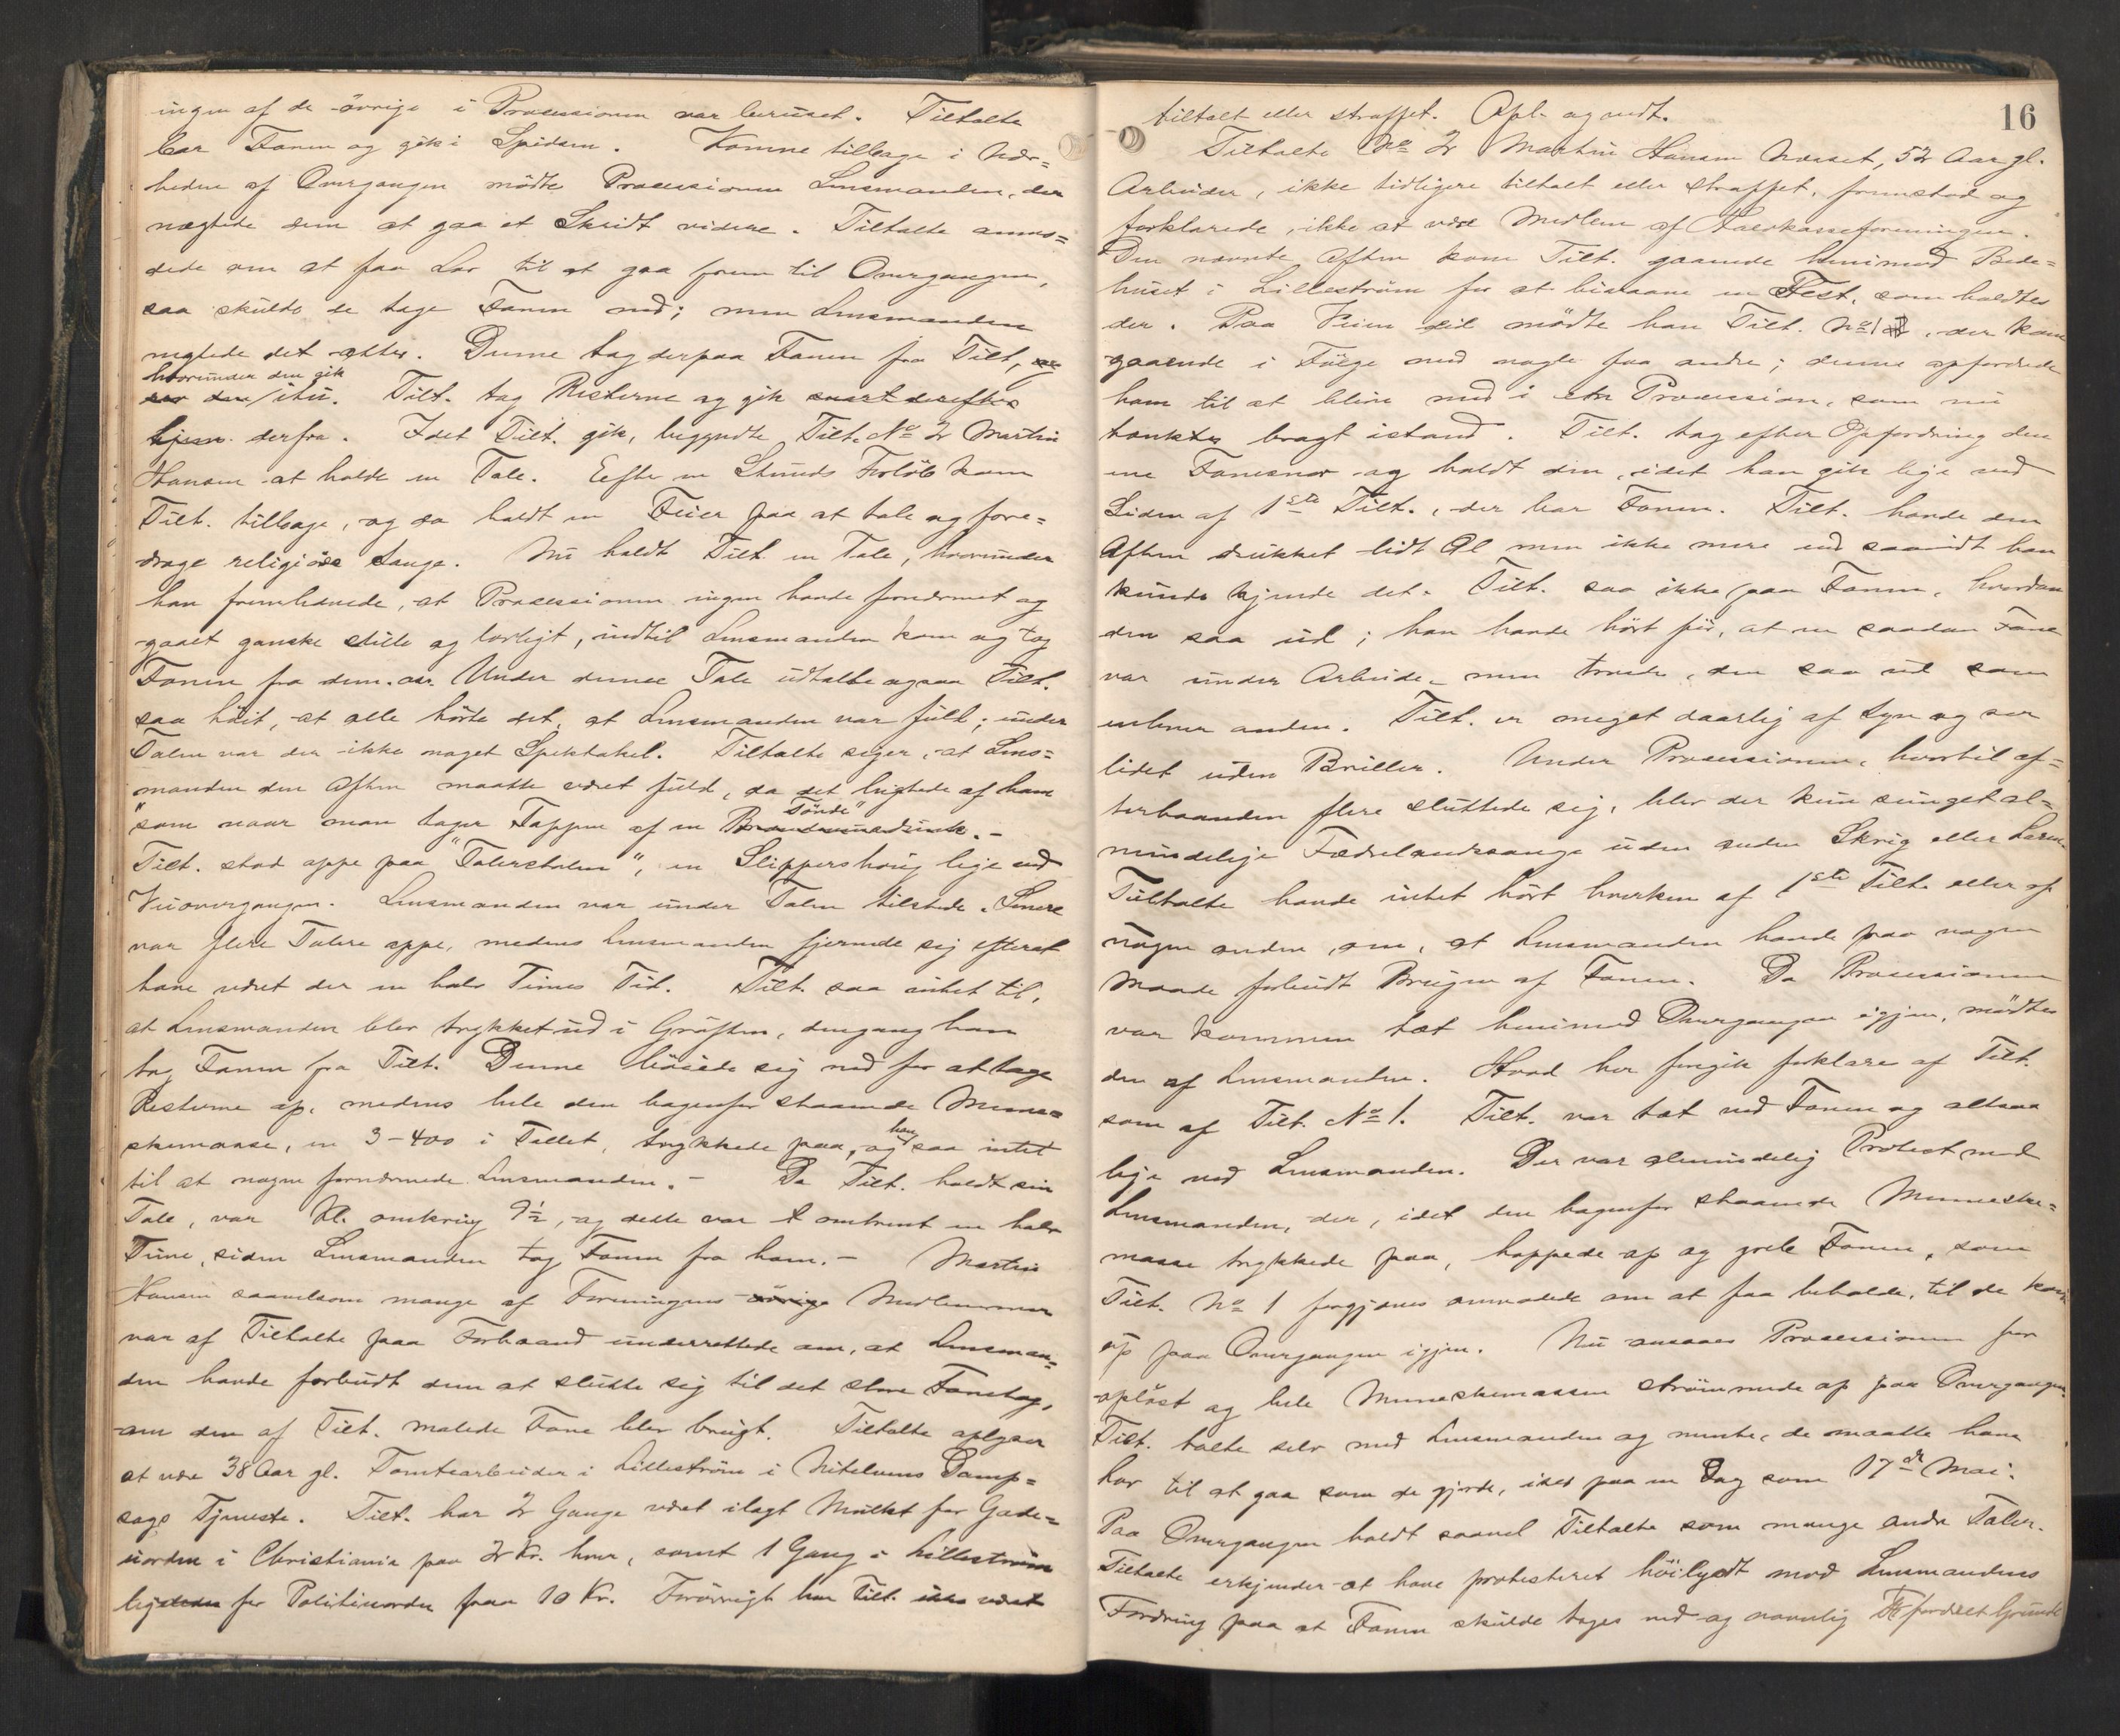 ingen af de øvrige i Processionen var beruset. Tiltalte
bar Fanen og gik i Spidsen. Komne tilbage i Nær=
heden af Overgangen mødte Processionen Lensmanden, der
nægtede dem at gaa et Skridt videre. Tiltalte anmo=
dede om at faa Lov til at gaa frem til Overgangen,
saa skulde de tage Fanen ned; men Lensmanden
nægtede det atter. Denne tog derpaa Fanen fra Tilt,
hvorunder den gik
itu. Tilt. tog Resterne og gik snart derefter
hjem derfra. Idet Tilt. gik, begyndte Tilt. No 2 Martin
Hansen at holde en Tale. Efter en Stunds Forløb kom
Tilt. tilbage, og da holdt en Feier paa at tale og fore=
drage religiøse Sange. Nu holdt Tilt. en Tale, hvorunder
han fremhævede, at Processionen ingen havde fornærmet og
gaaet ganske stille og lovligt, indtil Lensmanden kom og tog
Fanen fra dem. Under denne Tale udtalte ogsaa Tilt.
saa høit, at alle hørte det, at Lensmanden var fuld; under
Talen var der ikke noget Spektakel. Tiltalte siger, at Lens=
manden den Aften maatte været fuld, da det lugtede af ham
"som naar man tager Tappen af en Brændevins
Tønde".-
Tilt. stod oppe paa "Talerstolen", en Slippershoug lige ved
Veiovergangen. Lensmanden var under Talen tilstede. Senere
var flere Talere oppe, medens Lensmanden fjernede sig efterat
have været der en halv Times Tid. Tilt. saa intet til,
at Lensmanden blev trykket ud i Grøften, dengang han
tog Fanen fra Tilt. Denne bøiede sig ned for at tage
Resterne op, medens hele den bagenfor staaende Menne=
skemasse, en 3-400 i Tallet, trykkede paa, og han saa intet
til at nogen fornærmede Lensmanden.- Da Tilt. holdt sin
Tale, var Kl. omkring 9½, og dette var omtrent en halv
Time, siden Lensmanden tog Fanen fra ham.- Martin
Hansen saavelsom mange af Foreningens øvrige Medlemmer
var af Tiltalte paa Forhaand underrettede om, at Lensman=
den havde forbudt dem at slutte sig til det store Fanetog,
om den af Tilt. malede Fane blev brugt. Tiltalte oplyser
at være 38 Aar gl. Tomtearbeider i Lillestrøm i Nitelvens Damp=
sags Tjeneste. Tilt. har 2 Gange været ilagt Mulkt for Gade=
uorden i Christiania paa 2 Kr. hver, samt 1 Gang i Lillestrøm
for Politiuorden paa 10 Kr. Forøvrigt har Tilt. ikke været
16
tiltalt eller straffet. Opl. og vedt.
Tiltalte No 2 Martin Hansen Næsset, 52 Aar gl.
Arbeider, ikke tidligere tiltalt eller straffet, fremstod og
forklarede, ikke at være Medlem af
Den nævnte Aften kom Tilt. gaaende henimod Bede=
huset i Lillestrøm for at bivaane en Fest, som holdtes
der. Paa Veien did mødte han Tilt. No 1, der kom
gaaende i Følge med nogle faa andre; denne opfordrede
ham til at blive med i en Procession, som nu
tænktes bragt istand. Tilt. tog efter Opfordring den
ene Fanesnor og holdt den, idet han gik lige ved
Siden af 1ste Tilt., der bar Fanen. Tilt. havde den
Aften drukket lidt Øl men ikke mere end saavidt han
kunde kjende det. Tilt. saa ikke paa Fanen, hvordan
den saa ud; han havde hørt før, at en saadan Fane
var under Arbeide, men troede, den saa ud som
enhver anden. Tilt. er meget daarlig af Syn og ser
lidet uden Briller. Under Processionen, hvortil ef=
terhaanden flere sluttede sig, blev der kun sunget al=
mindelige Fædrelandssange uden anden Skrig eller Lærm.
Tiltalte havde intet hørt hverken af 1ste Tilt. eller af
nogen anden, om, at Lensmanden havde paa nogen
Maade forbudt Brugen af Fanen. Da Processionen
var kommen tæt henimod Overgangen igjen, mødtes
den af Lensmanden. Hvad her foregik forklares af Tilt.
som af Tilt. No 1. Tilt. var tæt ved Fanen og altsaa
lige ved Lensmanden. Der var almindelig Protest mod
Lensmanden, der, idet den bagenfor staaende Menneske=
masse trykkede paa, hoppede op og greb Fanen, som
Tilt. No 1 forgjæves anmodede om at faa beholde, til de kom
op paa Overgangen igjen. Nu ansaaes Processionen for
opløst og hele Menneskemassen strømmede op paa Overgangen.
Tilt. talte selv med Lensmanden og mente, de maatte have
Lov til at gaa som de gjorde, idet paa en Dag som 17de Mai.
Paa Overgangen holdt saavel Tiltalte som mange andre Taler.
Tiltalte erkjender at have protesteret høilydt mod Lensmandens
Fordring paa at Fanen skulde tages ned og navnlig fordret Grunde